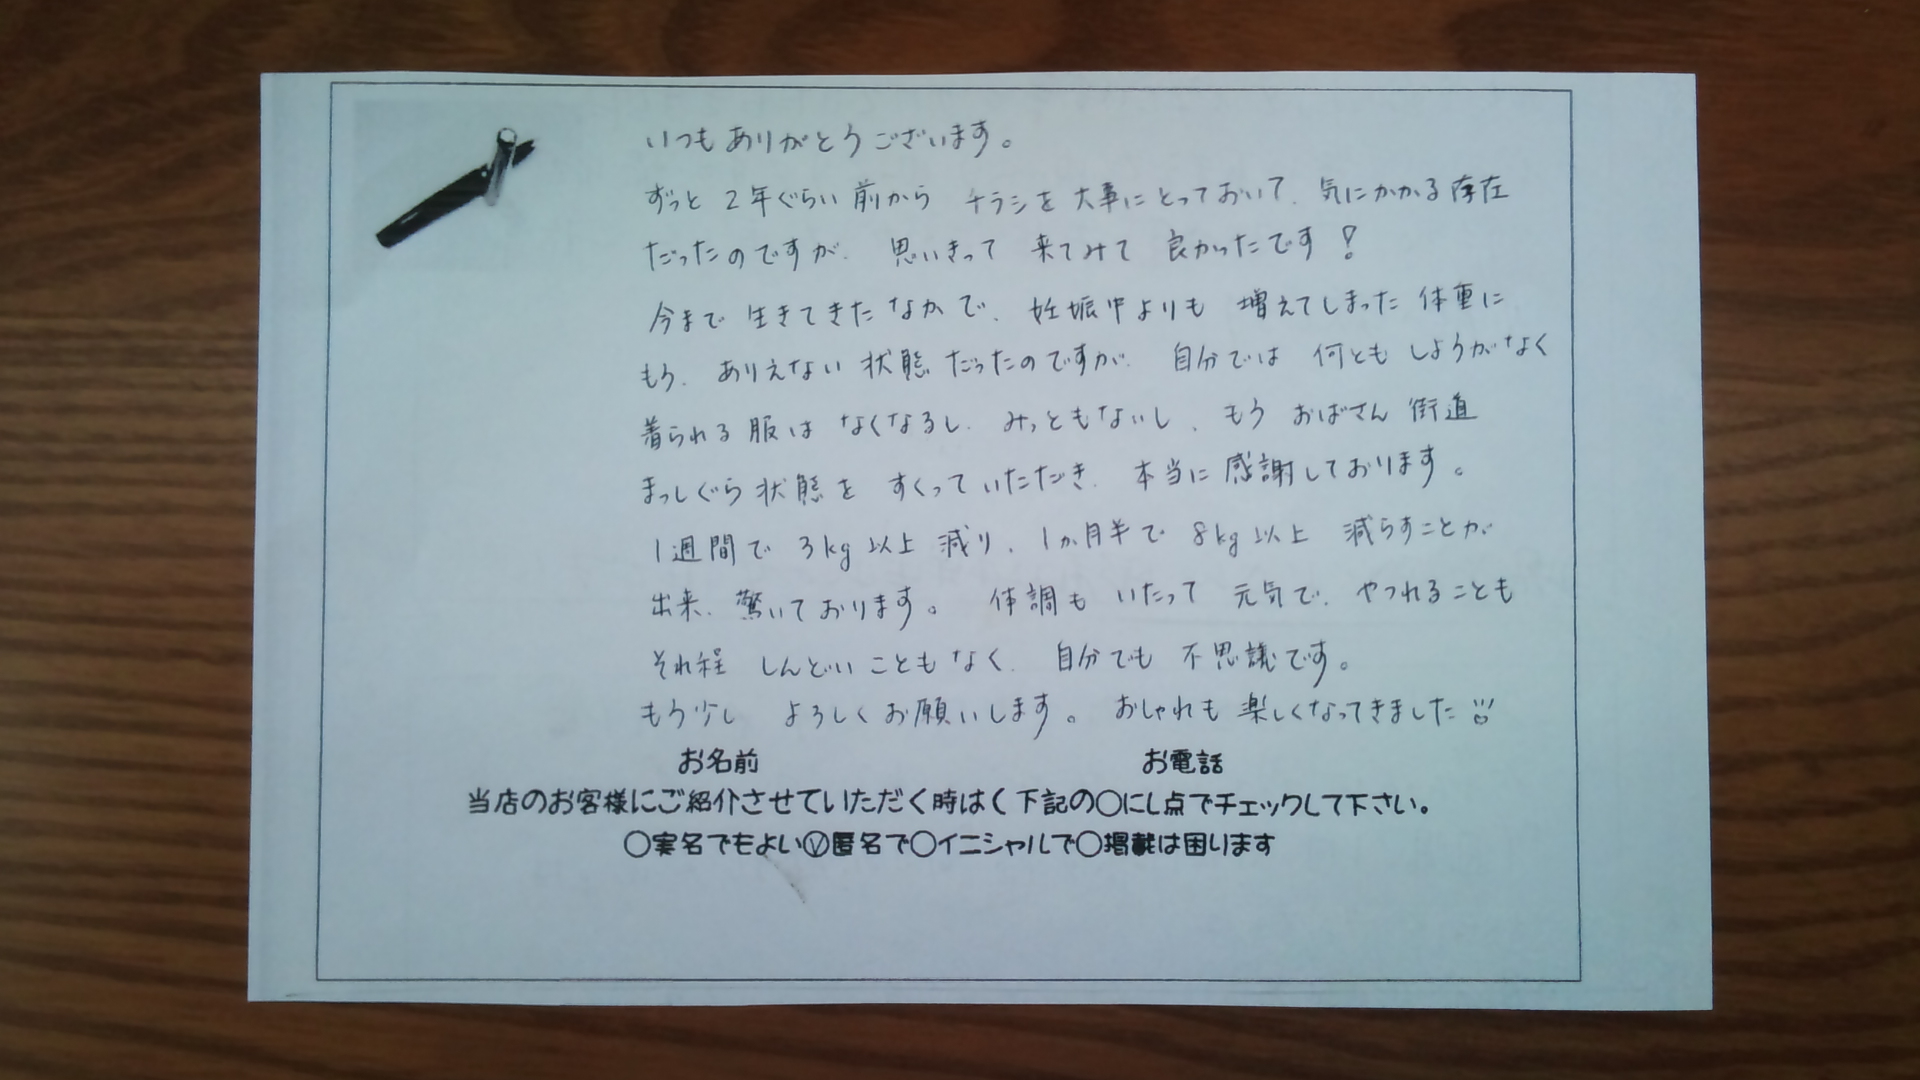 いつもありがとうございます。
ずっと 2年ぐらい前から チラシを大事にとっておいて、気にかかる存在
だったのですが、思いきって 来てみて 良かったです!
今まで 生きてきた なかで、妊娠中よりも 増えてしまった 体重に
もう、ありえない 状態だったのですが、自分では 何とも しようがなく
着られる服は なくなるし、みっともないし、もう おばさん 街道
まっしぐら状態を すくっていただき、本当に感謝しております。
1週間で 3kg以上 減り、1か月半で 8kg以上 減らすことが
出来、驚いております。 体調も いたって 元気で、やつれることも
それ程 しんどいこともなく、自分でも 不思議です。
もう少し よろしくお願いします。 おしゃれも 楽しくなってきました
お名前 お電話
当店のお客様にご紹介させていただく時はく下記の○にし点でチェックして下さい。
○実名でもよい ✓匿名で○イニシャルで○掲載は困ります